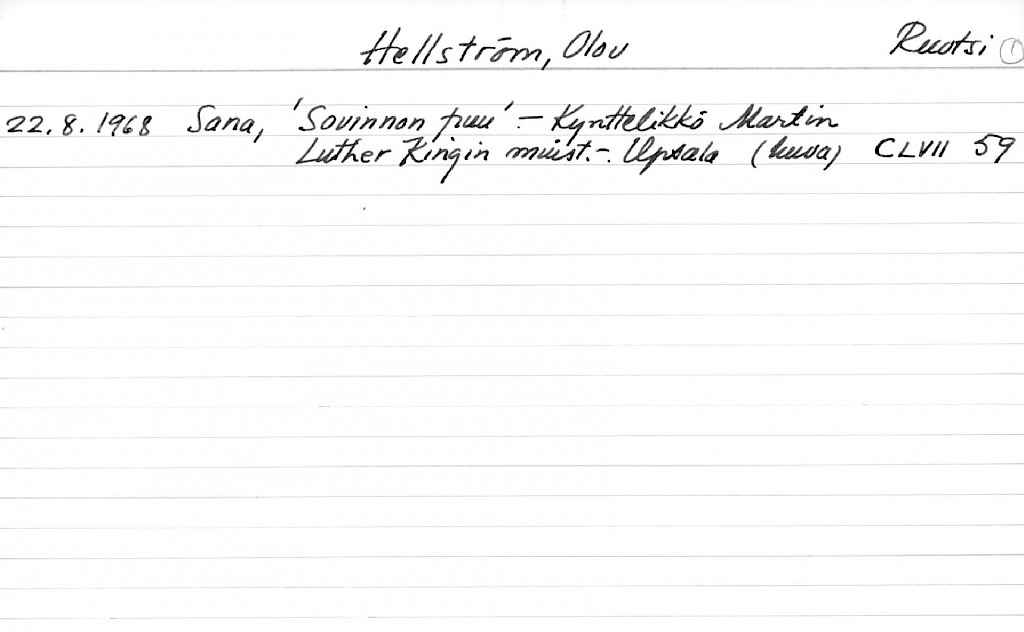 Hellström, Olov Ruotsi 1
22.8.1968 Sana, 'Sovinnon puu' - Kynttelikkö Martin
Luther Kingin muist. -. Upsala (kuva) CLVII 59